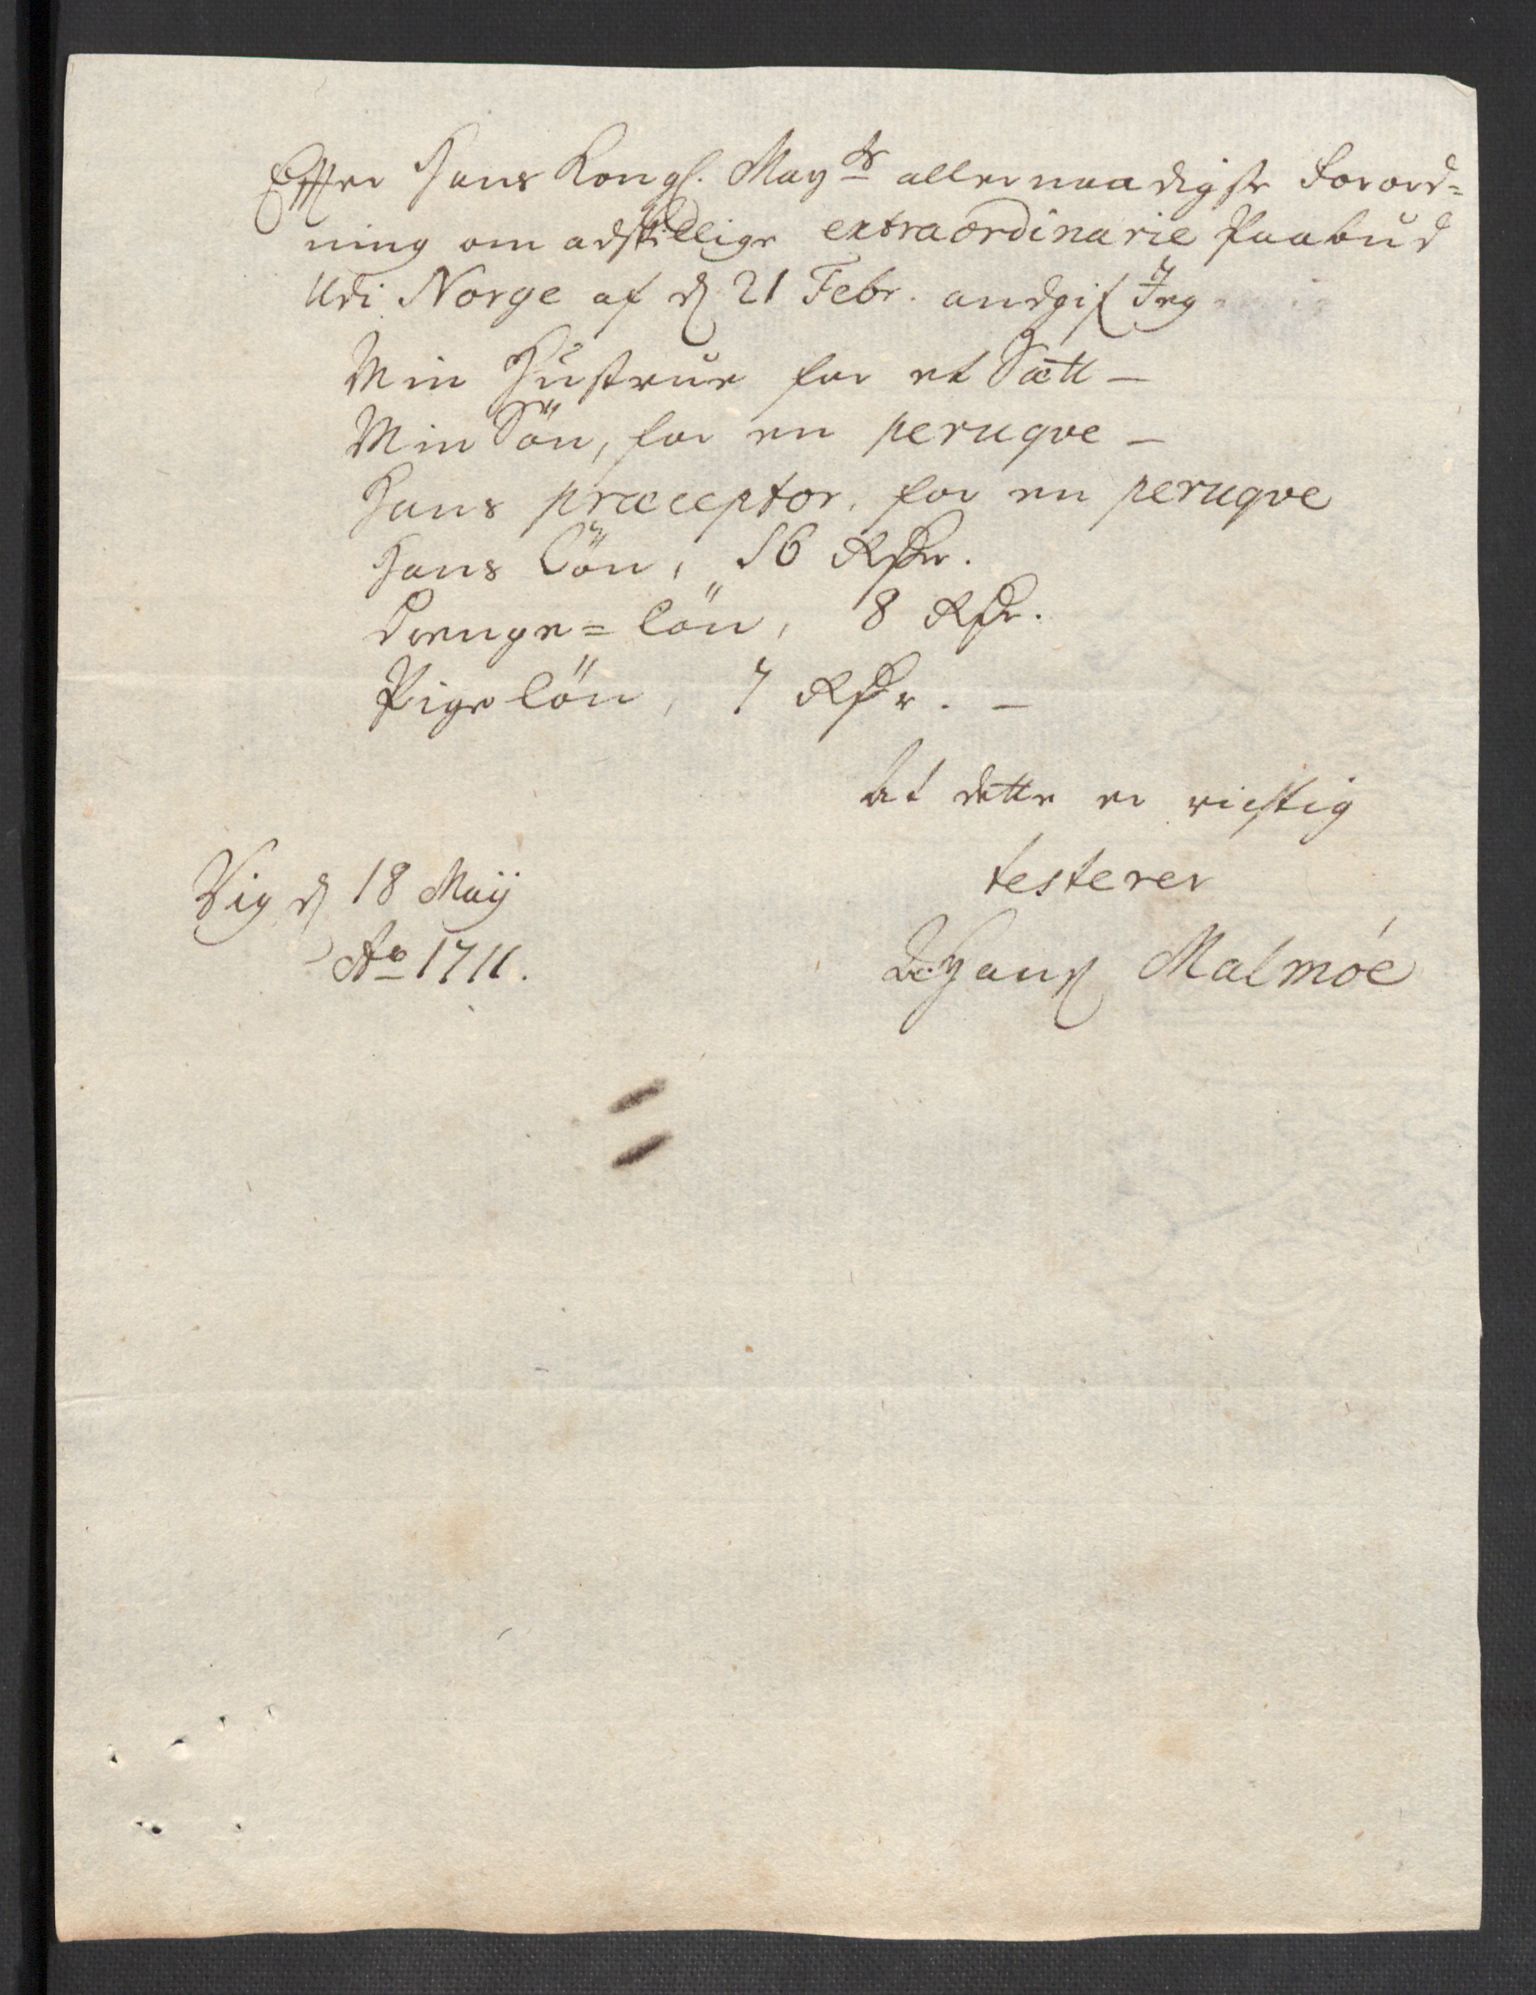 Effter Hans Kongl. May^ts allernaadigste Forord=
ning om adskillige extraordinarie Paabud
Udi Norge af d 21 Febr. andgif Jeg
Min Hustrue for et Sætt –
Min Sön, for en peruqve –
Hans præceptor, for en peruqve
Hans Lön, 16 Rdr.
Drenge=lön, 8 Rdr.
Pige lön, 7 Rdr. –
At dette er rictig
testerer
Vig d 18 Maij
Ao 1711.
Hans Malmöe